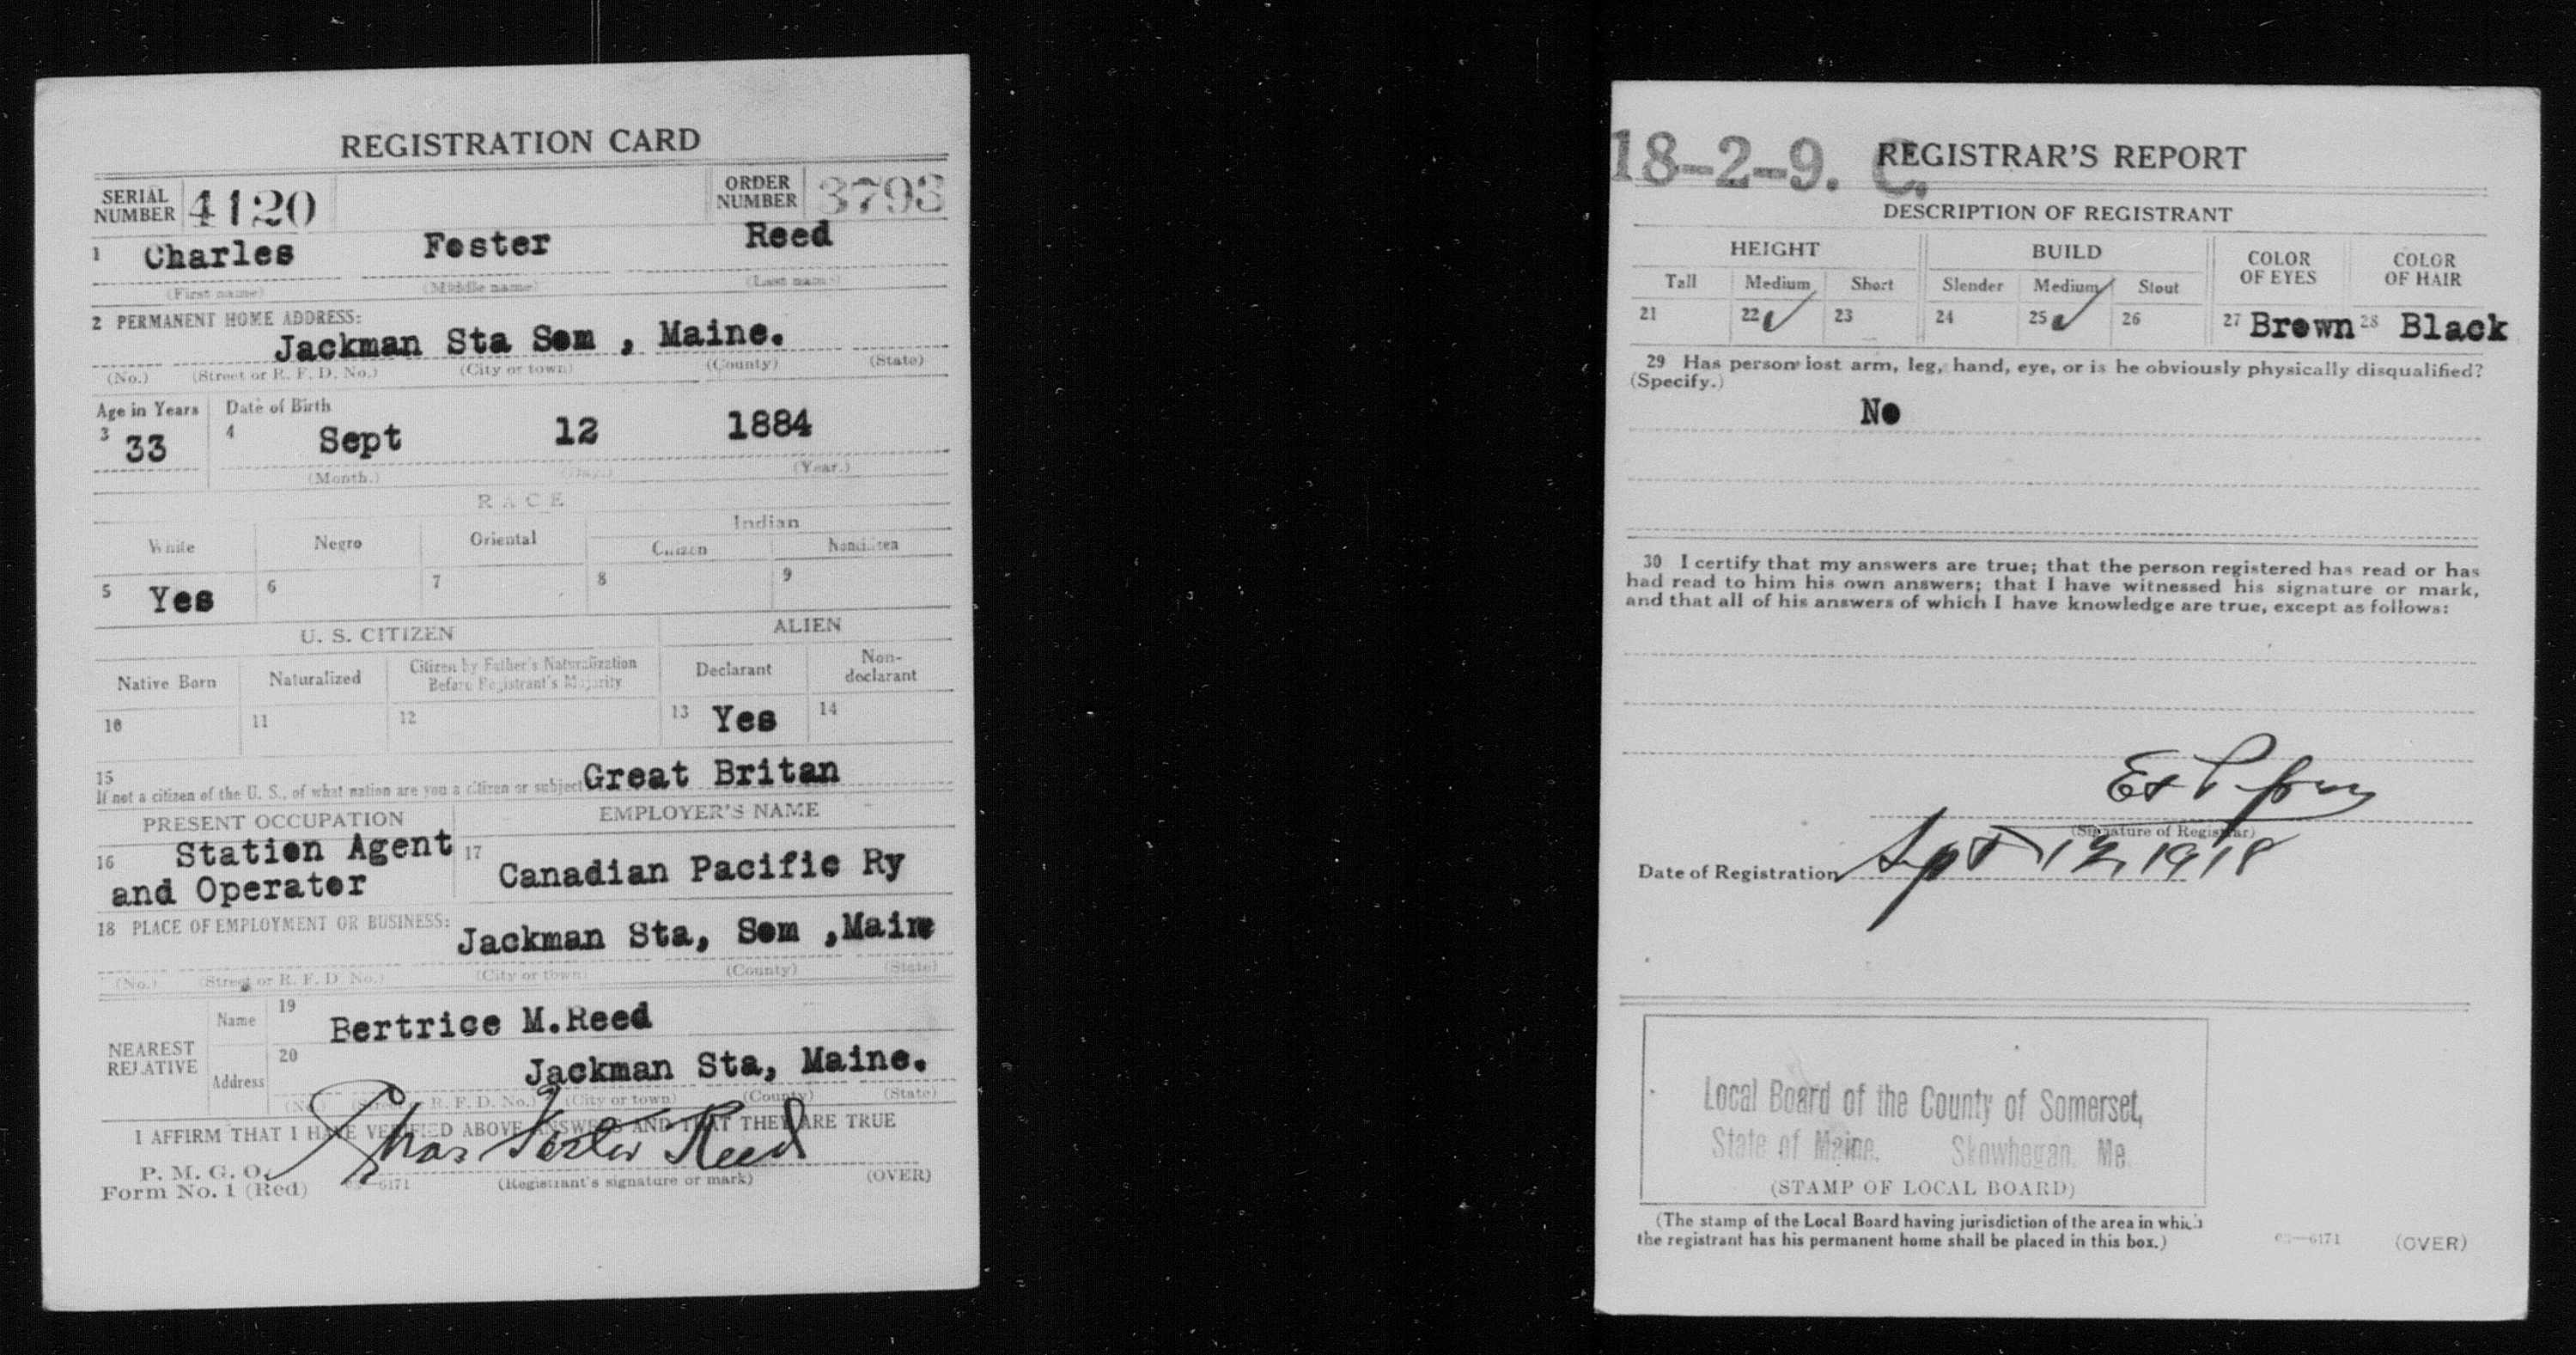 REGISTRATION CARD
SERIAL NUMBER 4120 ORDER NUMBER 3793
1 Charles Foster Reed
(First name) (Middle name) (Last name)
2 PERMANENT HOME ADDRESS:
Jackman Sta Som , Maine.
(No.) (Street or R. F. D. No.) (City or town) (County) (State)
Age in Years Date of Birth
3 33 4 Sept 12 1884
(Month.) (Day.) (Year.)
RACE
White Negro Oriental Indian
Citizen Noncitizen
5 Yes 6 7 8 9
U. S. CITIZEN ALIEN
Native Born Naturalized Citizen by Father's Naturalization Before Registrant's Majority Declarant Non-declarant
10 11 12 13 Yes 14
15
If not a citizen of the U. S., of what nation are you a citizen or subject Great Britan
PRESENT OCCUPATION EMPLOYER'S NAME
16 Station Agent 17 Canadian Pacific Ry
and Operator
18 PLACE OF EMPLOYMENT OR BUSINESS:
Jackman Sta, Som ,Maine
(No.) (Street or R. F. D. No.) (City or town) (County) (State)
NEAREST RELATIVE
Name 19 Bertrice M.Reed
Address 20 Jackman Sta, Maine.
(No.) (Street or R. F. D. No.) (City or town) (County) (State)
I AFFIRM THAT I HAVE VERIFIED ABOVE ANSWERS AND THAT THEY ARE TRUE
Chas Foster Reed
P. M. G. O.
Form No. 1 (Red) 03—6171 (Registrant's signature or mark) (OVER)
18-2-9. C.
REGISTRAR'S REPORT
DESCRIPTION OF REGISTRANT
HEIGHT BUILD COLOR OF EYES COLOR OF HAIR
Tall Medium Short Slender Medium Stout
21 22 ✓ 23 24 25 ✓ 26 27 Brown 28 Black
29 Has person lost arm, leg, hand, eye, or is he obviously physically disqualified?
(Specify.)
No
30 I certify that my answers are true; that the person registered has read or has
had read to him his own answers; that I have witnessed his signature or mark,
and that all of his answers of which I have knowledge are true, except as follows:
(Signature of Registrar)
Date of Registration Sept 12, 1918
Local Board of the County of Somerset,
State of Maine. Skowhegan, Me.
(STAMP OF LOCAL BOARD)
(The stamp of the Local Board having jurisdiction of the area in which
the registrant has his permanent home shall be placed in this box.)
03—6171 (OVER)